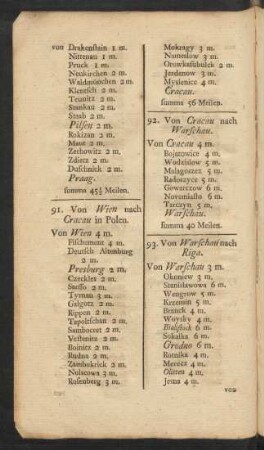 von Drakenstain 1 m.
Nittenau 1 m.
Pruck 1 m.
Neukirchen 2 m.
Waldmünchen 2 m.
Klentsch 2 m.
Teinitz 2 m.
Stankau 2 m.
Staab 2 m.
Pilsen 2 m.
Rokizan 2 m.
Maut 2 m.
Zerhowitz 2 m.
Zditz 2 m.
Duschnick 2 m.
Praag.
summa 45½ Meilen.
91. Von Wien nach
Cracau in Polen.
Von Wien 4 m.
Fischament 4 m.
Deutsch Altenburg
2 m.
Presburg 2 m.
Czeckles 2 m.
Sarfo 2 m.
Tyrnau 3 m.
Galgotz 2 m.
Rippen 2 m.
Tapoltschan 2 m.
Sambocret 2 m.
Vestenitz 2 m.
Boinitz 2 m.
Radna 2 m.
Zambokrick 2 m.
Nolacowa 3 m.
Rosenberg 3 m.
Mokragy 3 m.
Namislaw 3 m.
2 m.
Jordanow 3 m.
Myslenitz 4 m.
Cracau.
summa 56 Meilen.
92. Von Cracau nach
Warschau.
Von Cracau 4 m.
Bojotowice 4 m.
Wodzislaw 5 m.
Malagoszcz 5 m.
Radoczycz 5 m.
Gowarczow 6 m.
Novemiasta 6 m.
Tarczyn 5 m.
Warschau.
summa 40 Meilen.
93. Von Warschau nach
Riga.
Von Warschau 3 m.
Okoniew 3 m.
Stanislawowa 6 m.
Wengrow 5 m.
Kczemin 5 m.
Branck 4 m.
Woysky 4 m.
Bialystock 6 m.
Sokolka 6 m.
Grodno 6 m.
Rotniska 4 m.
Merecz 4 m.
Olitten 4 m.
Jezna 4 m.